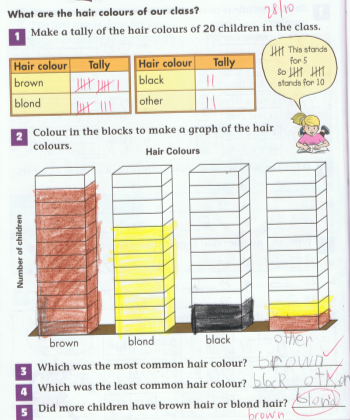 What are the hair colours of our class?
28/10
1 Make a tally of the hair colours of 20 children in the class.
Hair colour Tally
brown
blond
Hair colour Tally
black
other
This stands
for 5
So
stands for 10
2 Colour in the blocks to make a graph of the hair
colours.
Hair Colours
Number of children
brown blond black other
3 Which was the most common hair colour? brown
4 Which was the least common hair colour? black
5 Did more children have brown hair or blond hair? blond
brown